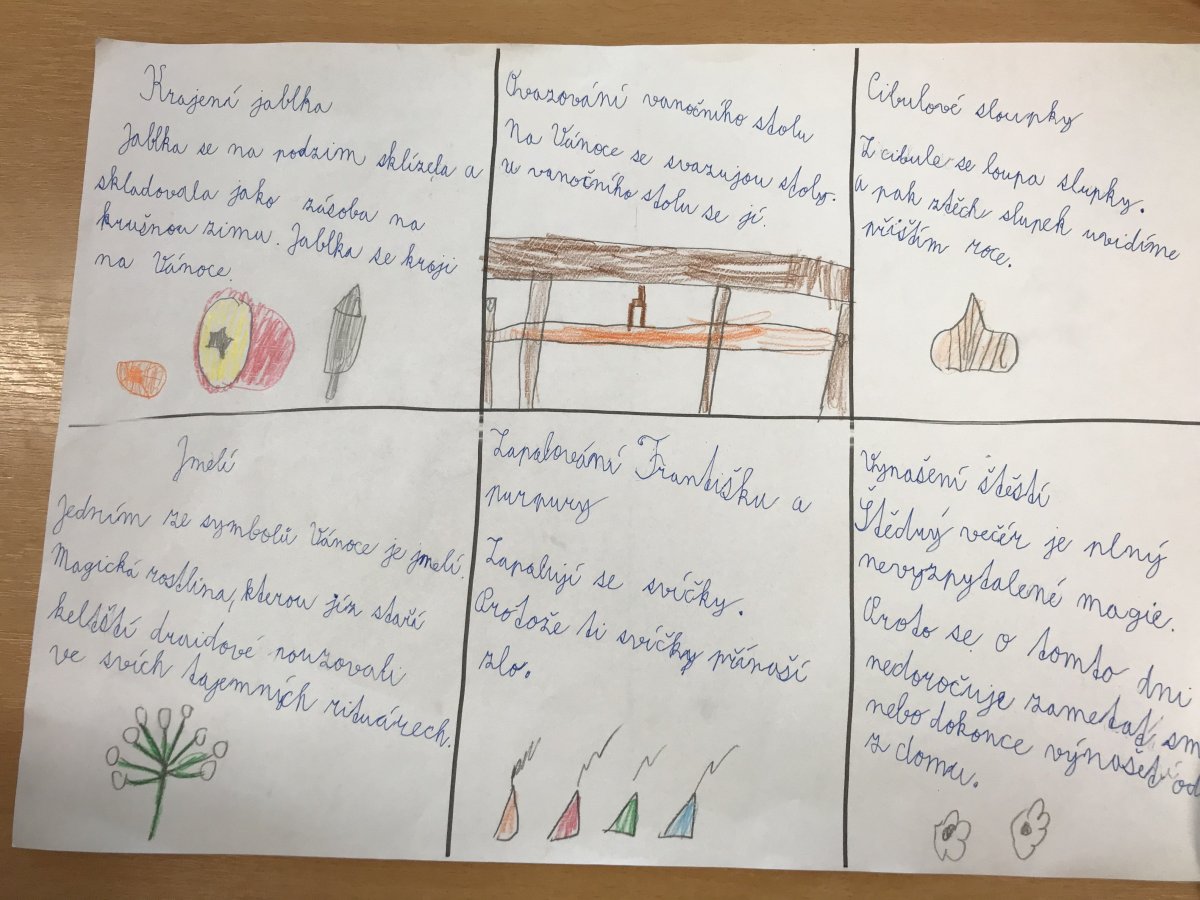 Krajení jablka
Jablka se na podzim sklízela a
skladovala jako zásoba na
krušnou zimu. Jablka se krojí
na Vánoce.
Ovazování vanočního stolu
Na Vánoce se svazujou stoly.
u vanočního stolu se jí.
Cibulové sloupky
Z cibule se loupa slupky.
a pak ztěch slupek uvidíme
příštím roce.
Jmelí
Jedním ze symbolů Vánoce je jmelí.
Magická rostlina, kterou již staří
keltští druidové používali
ve svích tajemných rituárech.
Zapalování Františku a
purpury
Zapalují se svíčky.
Protože ti svíčky přínaší
zlo.
Vynašení štěstí
Štědrý večer je plný
nevyzpytalené magie.
Proto se o tomto dni
nedoročuje zametat sm
nebo dokonce výnašet od
z domu.